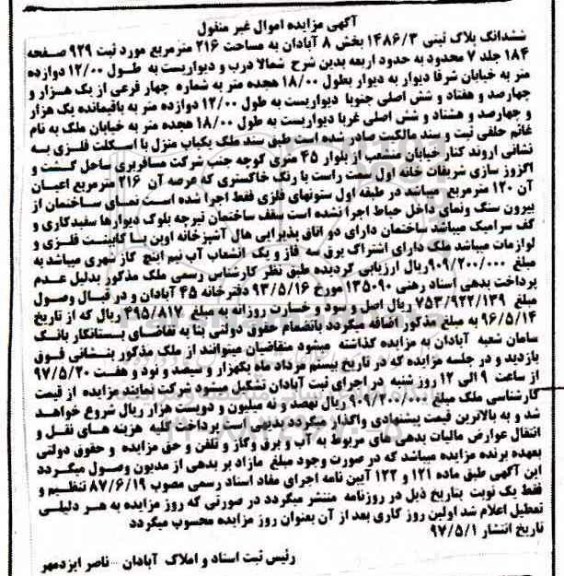 آگهی مزایده اموال غیر منقول
ششدانگ پلاک ثبتی ۱۴۸۶/۳ بخش ۸ آبادان به مساحت ۲۱۶ مترمربع مورد ثبت ۹۲۹ صفحه
۱۸۴ جلد ۷ محدود به حدود اربعه بدین شرح شمالا درب و دیواریست به طول ۱۲/۰۰ دوازده
متر به خیابان شرقا دیوار به دیوار بطول ۱۸/۰۰ هجده متر به شماره چهار فرعی از یک هزار و
چهارصد و هفتاد و شش اصلی جنوبا دیواریست به طول ۱۲/۰۰ دوازده متر به باقیمانده یک هزار
و چهارصد و هشتاد و شش اصلی غربا دیواریست به طول ۱۸/۰۰ هجده متر به خیابان ملک به نام
غانم حلفی ثبت و سند مالکیت صادر شده است طبق سند ملک یکباب منزل با اسکلت فلزی به
نشانی اروند کنار خیابان منشعب از بلوار ۴۵ متری کوچه جنب شرکت مسافربری ساحل گشت و
اگزوز سازی شریفات خانه اول سمت راست با رنگ خاکستری که عرصه آن ۲۱۶ مترمربع اعیان
آن ۱۲۰ مترمربع میباشد در طبقه اول ستونهای فلزی فقط اجرا شده است نمای ساختمان از
بیرون سنگ ونمای داخل حیاط اجرا نشده است سقف ساختمان تیرچه بلوک دیوارها سفیدکاری و
کف سرامیک میباشد ساختمان دارای دو اتاق پذیرایی هال آشپزخانه اوپن با کابینت فلزی و
لوازمات میباشد ملک دارای اشتراک برق سه فاز و یک انشعاب آب نیم اینچ گاز شهری میباشد به
مبلغ ۹۰۹/۲۰۰/۰۰۰ریال ارزیابی گردیده طبق نظر کارشناس رسمی ملک مذکور بدلیل عدم
پرداخت بدهی اسناد رهنی ۱۳۵۰۹۰مورخ ۹۳/۵/۱۶ دفترخانه ۴۵ آبادان و در قبال وصول
مبلغ ۷۵۳/۹۲۲/۱۳۹ ریال اصل و سود و خسارت روزانه به مبلغ ۳۹۵/۸۱۷ ریال که از تاریخ
۹۶/۵/۱۴ به مبلغ مذکور اضافه میگردد بانضمام حقوق دولتی بنا به تقاضای بستانکار بانک
سامان شعبه آبادان به مزایده گذاشته میشود متقاضیان میتوانند از ملک مذکور بنشانی فوق
بازدید و در جلسه مزایده که در تاریخ بیستم مرداد ماه یکهزار و سیصد و نود و هفت ۹۷/۵/۲۰
از ساعت ۹ الی ۱۲ روز شنبه در اجرای ثبت آبادان تشکیل میشود شرکت نمایند مزایده از قیمت
کارشناسی ملک مبلغ ۹۰۹/۲۰۰/۰۰۰ ریال نهصد و نه میلیون و دویست هزار ریال شروع خواهد
شد و به بالاترین قیمت پیشنهادی واگذار میگردد بدیهی است پرداخت کلیه هزینه های نقل و
انتقال عوارض مالیات بدهی های مربوط به آب و برق وگاز و تلفن و حق مزایده و حقوق دولتی
بعهده برنده مزایده میباشد که در صورت وجود مبلغ مازاد بر بدهی از مدیون وصول میگردد
این آگهی طبق ماده ۱۲۱ و ۱۲۲ آیین نامه اجرای مفاد اسناد رسمی مصوب ۸۷/۶/۱۹ تنظیم و
فقط یک نوبت بتاریخ ذیل در روزنامه منتشر میگردد در صورتی که روز مزایده به هر دلیلی
تعطیل اعلام شد اولین روز کاری بعد از آن بعنوان روز مزایده محسوب میگردد
تاریخ انتشار ۹۷/۵/۱
رئیس ثبت اسناد و املاک آبادان - ناصر ایزدمهر